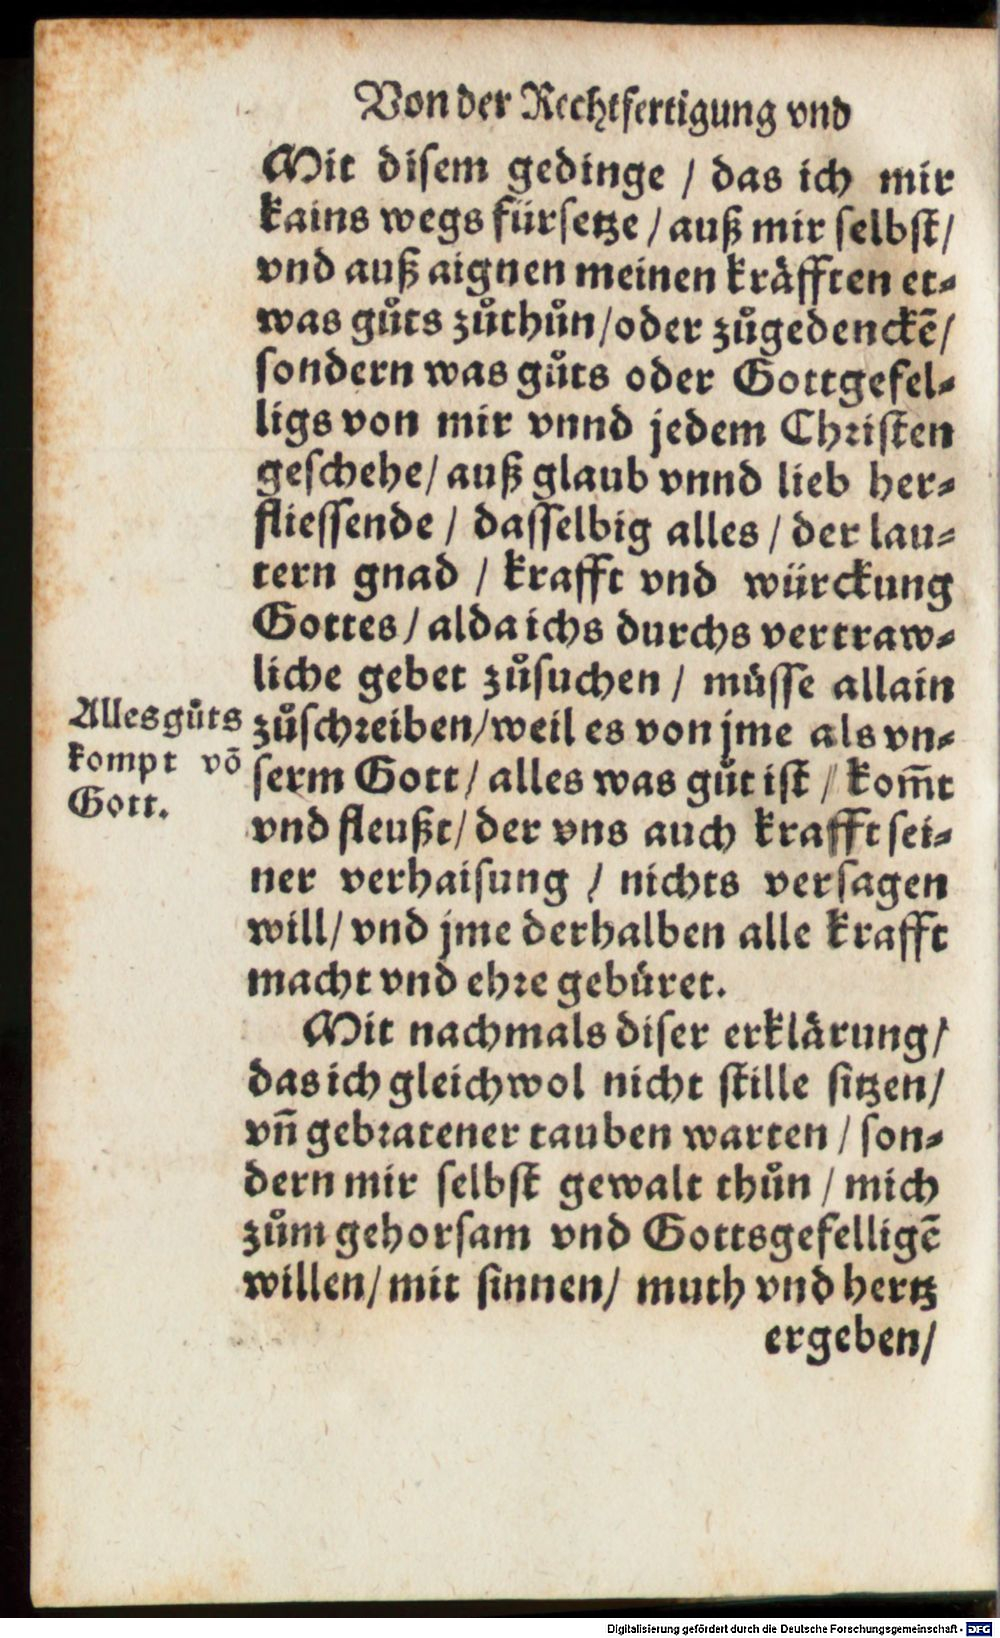 Von der Rechtfertigung vnd
Mit disem gedinge / das ich mir
kains wegs fürsetze / auß mir selbst /
vnd auß aignen meinen kräfften et⸗
was gůts zůthůn / oder zůgedenckē /
sondern was gůts oder Gottgefel⸗
ligs von mir vnnd jedem Christen
geschehe / auß glaub vnnd lieb her⸗
fliessende / dasselbig alles / der lau⸗
tern gnad / krafft vnd würckung
Gottes / alda ichs durchs vertraw⸗
liche gebet zůsuchen / müsse allain
zůschreiben / weil es von jme als vn⸗
serm Gott / alles was gůt ist / kom̄t
vnd fleußt / der vns auch krafft sei⸗
ner verhaisung / nichts versagen
will / vnd jme derhalben alle krafft
macht vnd ehre gebüret.
Alles gůts
kompt vō
Gott.
Mit nachmals diser erklärung /
das ich gleichwol nicht stille sitzen /
vn̄ gebratener tauben warten / son⸗
dern mir selbst gewalt thůn / mich
zům gehorsam vnd Gottsgefelligē
willen / mit sinnen / muth vnd hertz
ergeben /
Digitalisierung gefördert durch die Deutsche Forschungsgemeinschaft - DFG